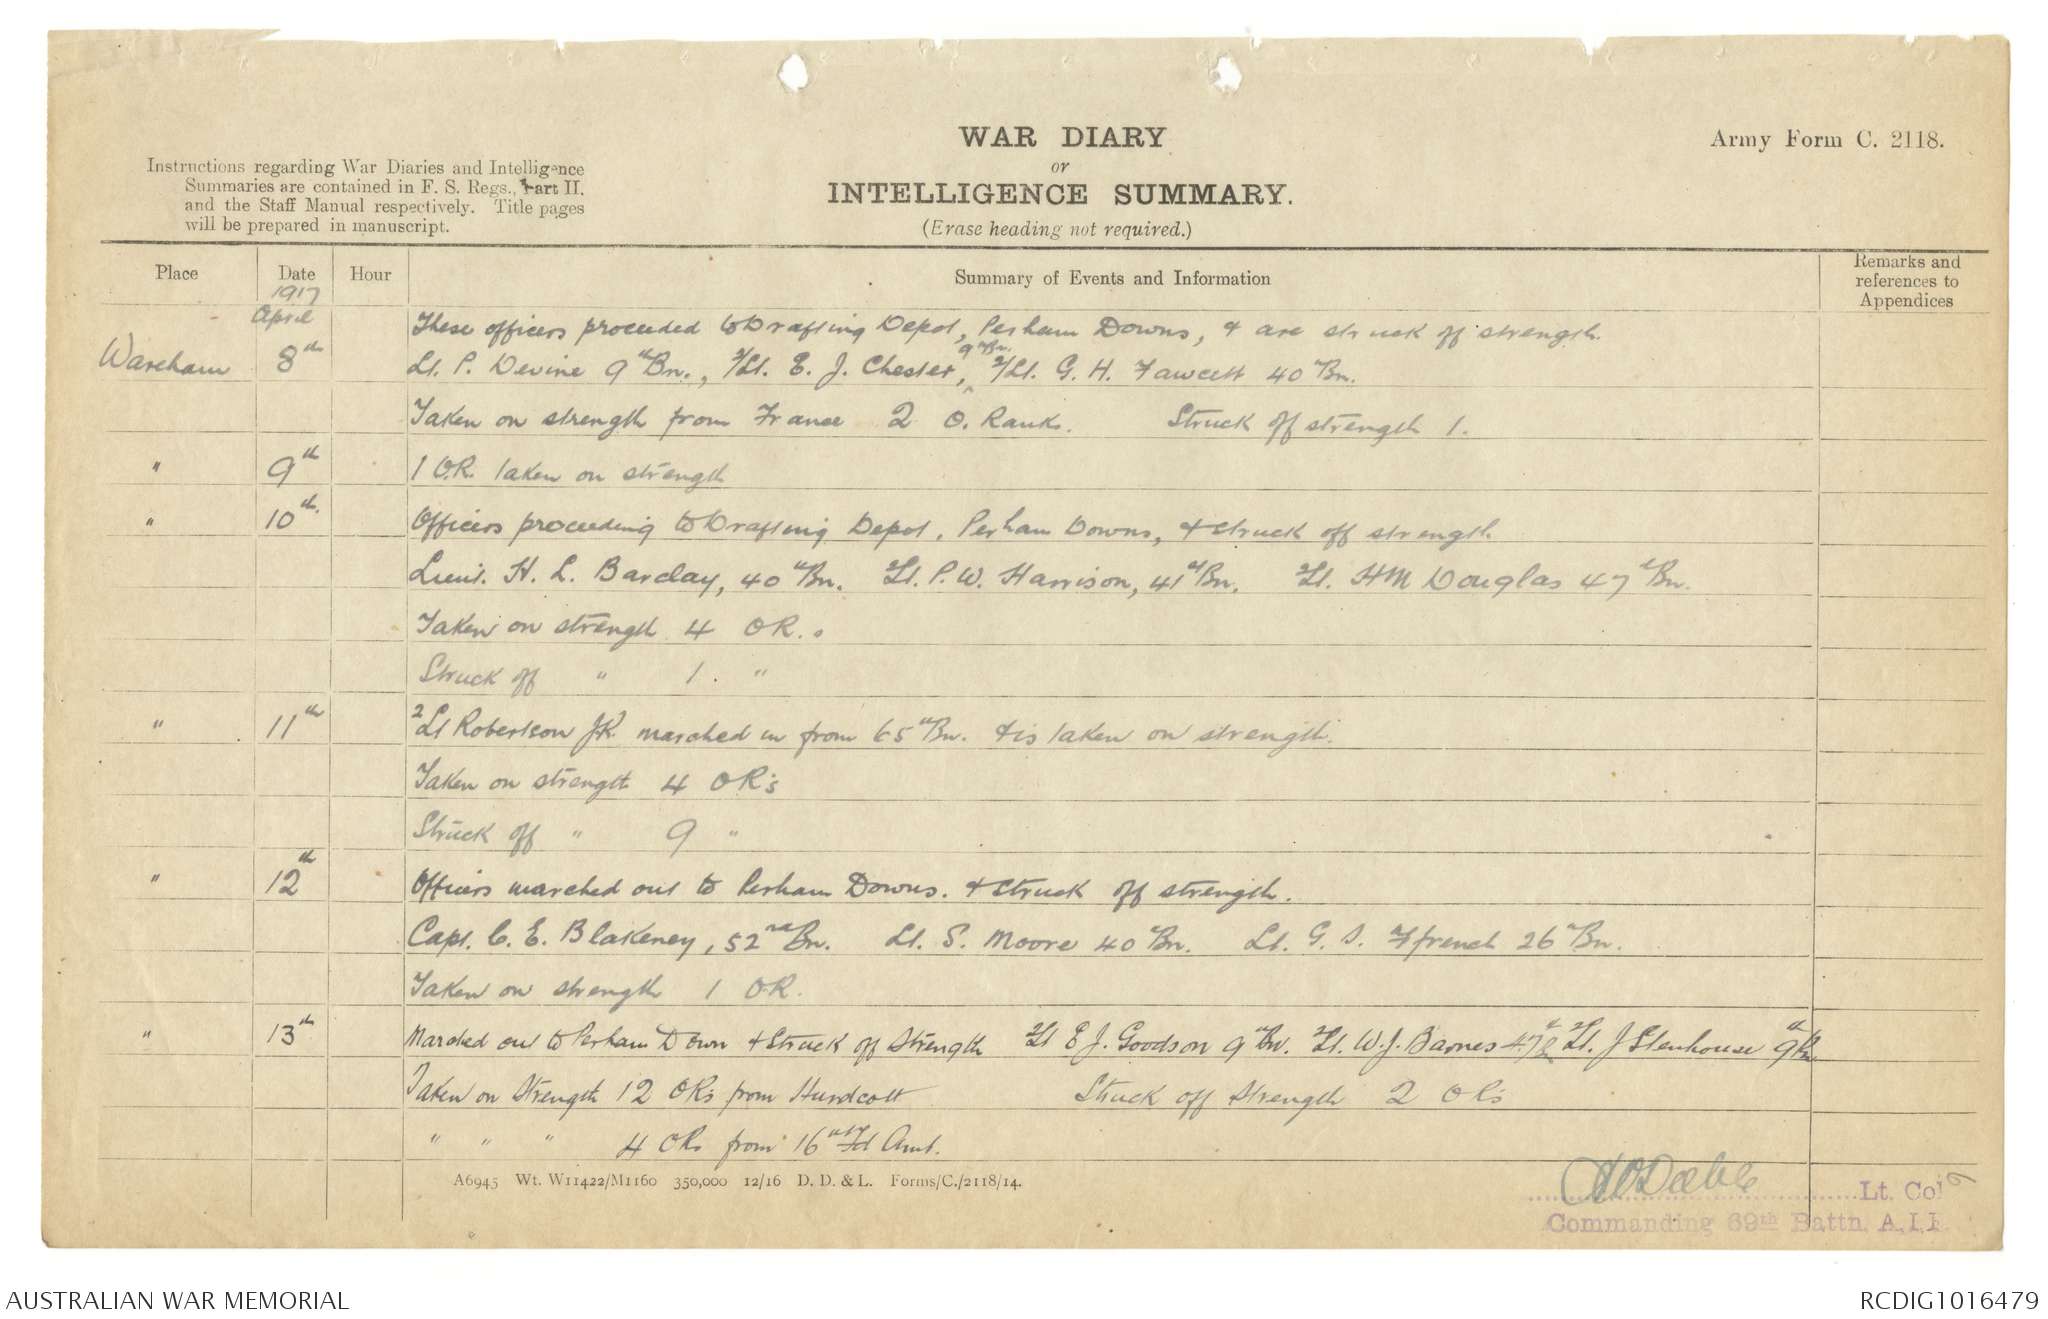 WAR DIARY
or
INTELLIGENCE SUMMARY.
(Erase heading not required.)
Army Form C. 2118.
Instructions regarding War Diaries and Intelligence
Summaries are contained in F. S. Regs., Part II.
and the Staff Manual respectively. Title pages
will be prepared in manuscript.
Place Date Hour Summary of Events and Information Remarks and references to Appendices
1917
April These officers proceeded to Drafting Depot, Perham Downs, & are struck off strength.
Wareham 8th Lt. P. Devine 9th Bn., 2/Lt. E. J. Chester, 9th Bn. 2/Lt. G. H. Fawcett 40th Bn.
Taken on strength from France 2 O. Ranks. Struck off strength 1.
" 9th 1 O.R. taken on strength
" 10th. Officers proceeding to Drafting Depot, Perham Downs, & struck off strength
Lieut. H. L. Barclay, 40th Bn. 2Lt. P. W. Harrison, 41st Bn. 2Lt. HM Douglas 47th Bn.
Taken on strength 4 OR.s
Struck off " 1. "
" 11th 2Lt Robertson J.K. marched in from 65th Bn. & is taken on strength.
Taken on strength 4 OR's
Struck off " 9 "
" 12th Officers marched out to Perham Downs. & struck off strength.
Capt. C. E. Blakeney, 52nd Bn. Lt. S. Moore 40th Bn. Lt. G. S. Ffrench 26th Bn.
Taken on strength 1 OR.
" 13th Marched out to Perham Down & Struck off Strength 2Lt E J. Goodson 9th Bn. 2Lt. W. J. Barnes 47th 2Lt. J Stenhouse 9th Bn
Taken on Strength 12 ORs from Hurdcott Struck off Strength 2 ORs
" " " 4 ORs from 16th Fd Amb.
A6945 Wt. W11422/M1160 350,000 12/16 D. D. & L. Forms/C./2118/14.
Lt. Col
Commanding 69th Battn A.I.F.
9
AUSTRALIAN WAR MEMORIAL
RCDIG1016479